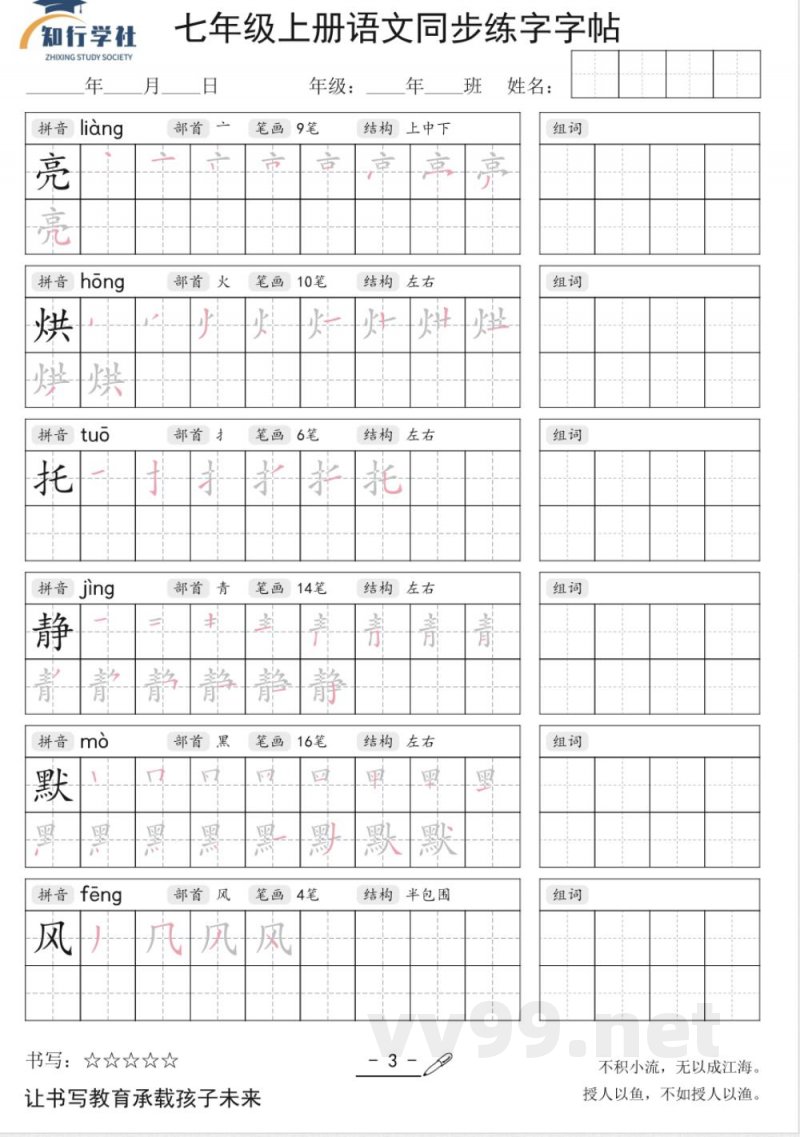 知行学社
ZHIXING STUDY SOCIETY
七年级上册语文同步练字字帖
______年____月____日 年级：____年____班 姓名：
拼音 liàng 部首 亠 笔画 9笔 结构 上中下 组词
亮
亮
拼音 hōng 部首 火 笔画 10笔 结构 左右 组词
烘
烘
拼音 tuō 部首 扌 笔画 6笔 结构 左右 组词
托 托
拼音 jìng 部首 青 笔画 14笔 结构 左右 组词
静
静
拼音 mò 部首 黑 笔画 16笔 结构 左右 组词
默
默
拼音 fēng 部首 风 笔画 4笔 结构 半包围 组词
风 风
vv99.net
书写：☆☆☆☆☆
- 3 -
不积小流，无以成江海。
让书写教育承载孩子未来
授人以鱼，不如授人以渔。